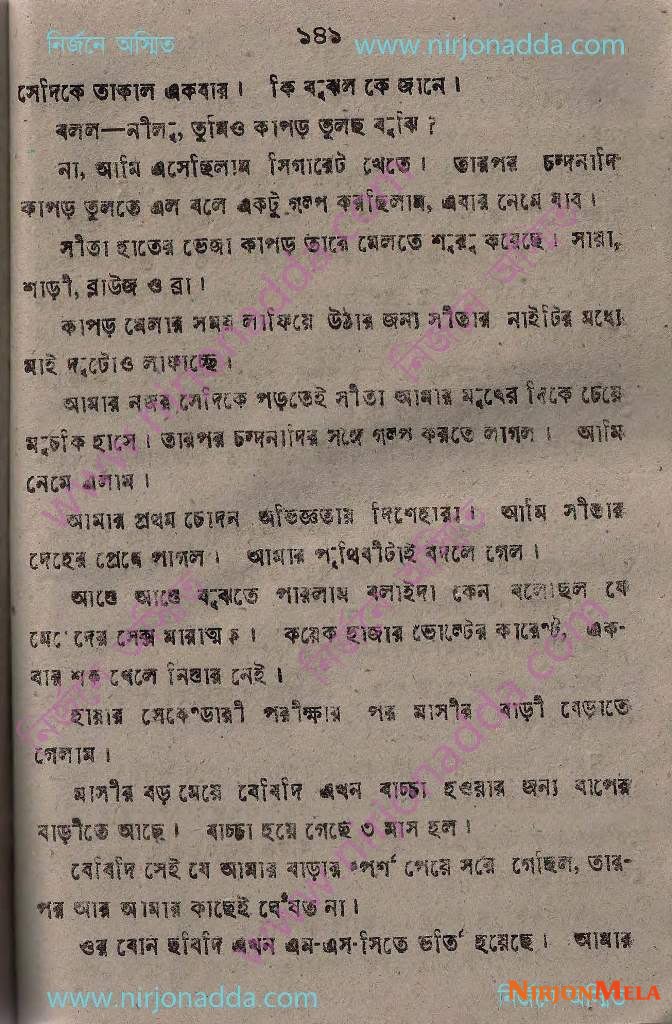 নির্জনে অস্মিত ১৪১ www.nirjonadda.com
সেদিকে তাকাল একবার। কি বুঝল কে জানে।
বলল—নীলু, তুমিও কাপড় তুলছ বুঝি?
না, আমি এসেছিলাম সিগারেট খেতে। তারপর চন্দনাদি
কাপড় তুলতে এল বলে একটু গল্প করছিলাম, এবার নেমে যাব।
সীতা হাতের ভেজা কাপড় তারে মেলতে শুরু করেছে। সায়া,
শাড়ী, ব্লাউজ ও ব্রা।
কাপড় মেলার সময় লাফিয়ে উঠার জন্য সীতার নাইটির মধ্যে
মাই দুটোও লাফাচ্ছে।
আমার নজর সেদিকে পড়তেই সীতা আমার মুখের দিকে চেয়ে
মুচকি হাসে। তারপর চন্দনাদির সঙ্গে গল্প করতে লাগল। আমি
নেমে এলাম।
আমার প্রথম চোদন অভিজ্ঞতায় দিশেহারা। আমি সীতার
দেহের প্রেমে পাগল। আমার পৃথিবীটাই বদলে গেল।
আস্তে আস্তে বুঝতে পারলাম বলাইদা কেন বলেছিল যে
মেয়েদের সেক্স মারাত্মক। কয়েক হাজার ভোল্টের কারেন্ট, এক-
বার শক খেলে নিস্তার নেই।
হায়ার সেকেণ্ডারী পরীক্ষার পর মাসীর বাড়ী বেড়াতে
গেলাম।
মাসীর বড় মেয়ে বেবিদি এখন বাচ্চা হওয়ার জন্য বাপের
বাড়ীতে আছে। বাচ্চা হয়ে গেছে ৩ মাস হল।
বেবিদি সেই যে আমার বাড়ার স্পর্শ পেয়ে সরে গেছিল, তার-
পর আর আমার কাছেই ঘেঁষত না।
ওর বোন ছবিদি এখন এম-এস-সিতে ভর্তি হয়েছে। আমার
www.nirjonadda.com নির্জনে অস্মিত
NIRJONMELA